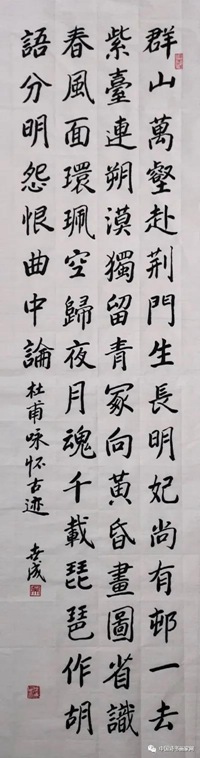 群山萬壑赴荊門生長明妃尚有邨一去
紫臺連朔漠獨留青冢向黃昏畫圖省識
春風面環珮空歸夜月魂千載琵琶作胡
語分明怨恨曲中論
杜甫咏懷古迹 成
中国诗书画家网